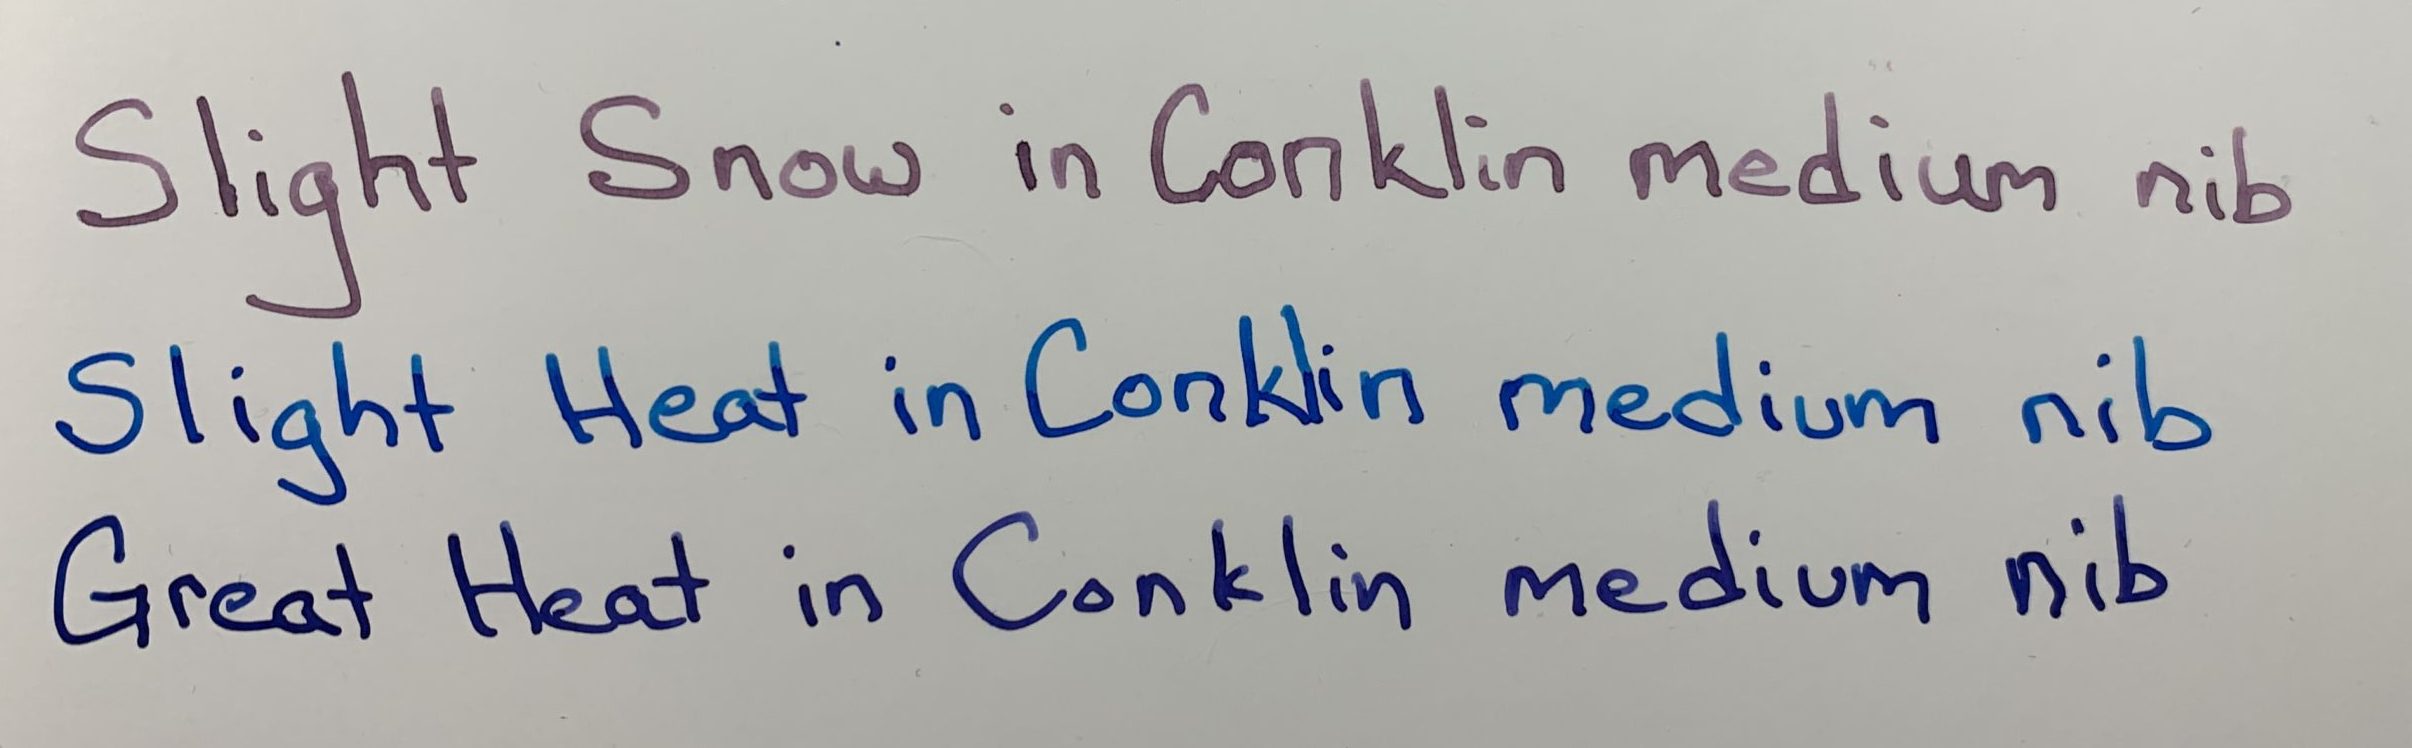 Slight Snow in Conklin medium nib
Slight Heat in Conklin medium nib
Great Heat in Conklin medium nib